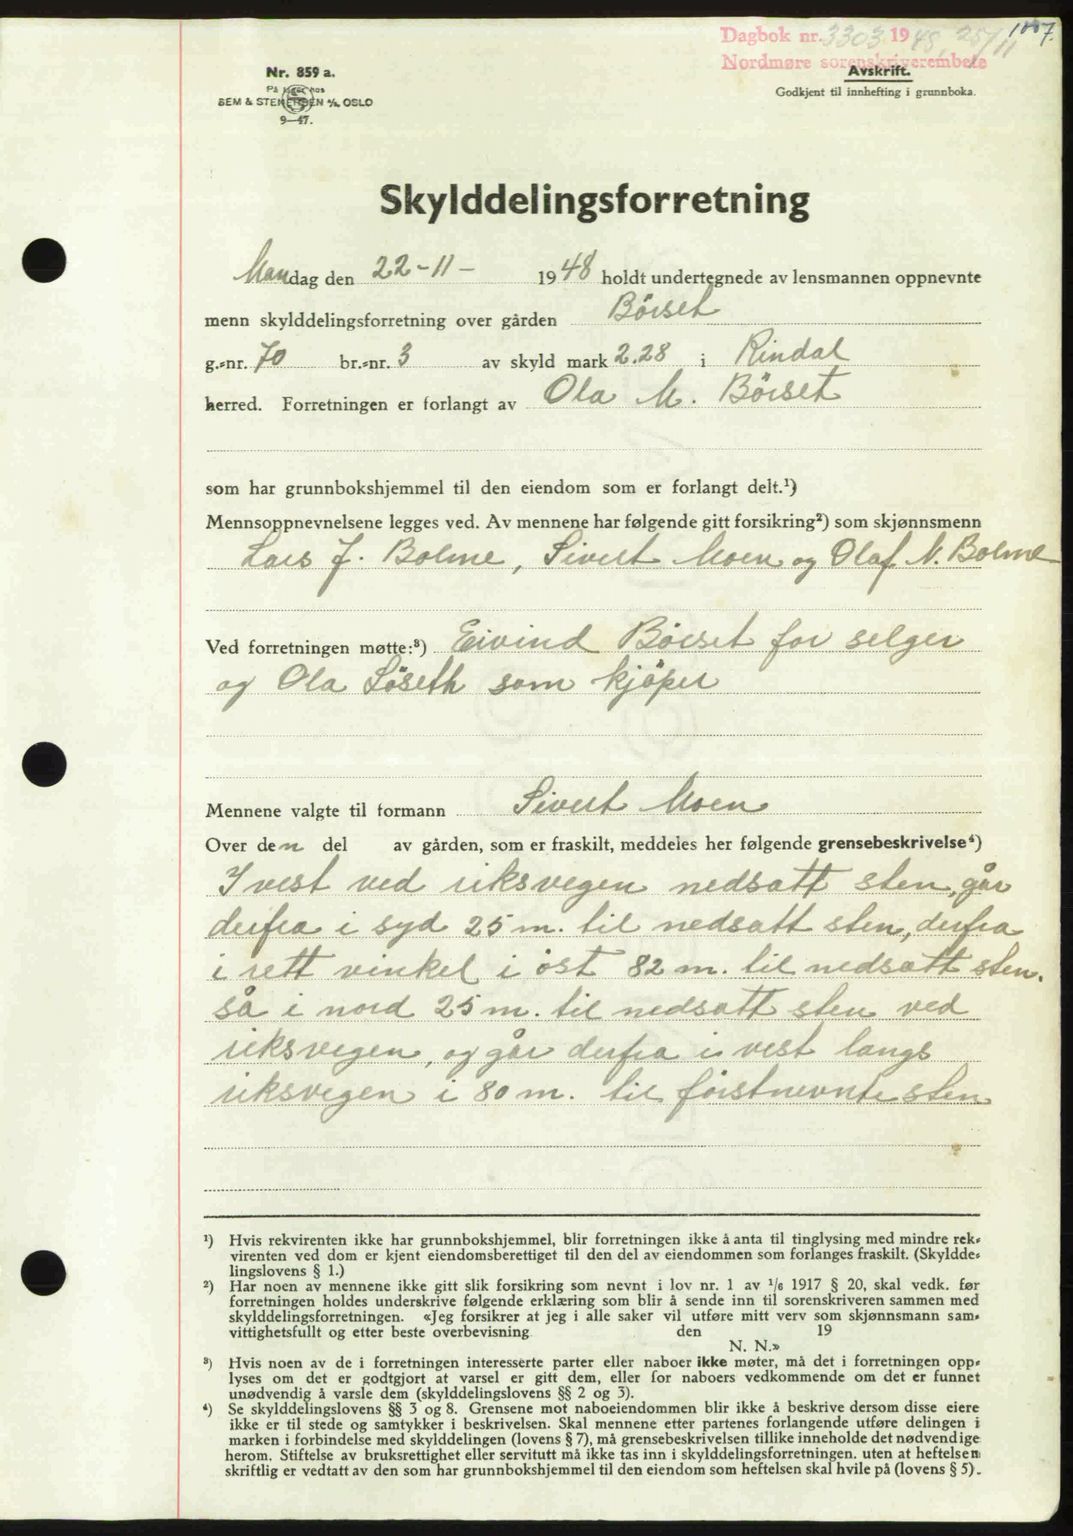 1887.
Dagbok nr. 3303 1948, 25/11
Nordmøre sorenskriverembete
Nr. 859 a.
På lager hos
SEM & STENERSEN A/S, OSLO
9—47.
Avskrift.
Godkjent til innhefting i grunnboka.
Skylddelingsforretning
Mandag den 22-11- 1948 holdt undertegnede av lensmannen oppnevnte
menn skylddelingsforretning over gården Börset
g.-nr. 70 br.-nr. 3 av skyld mark 2.28 i Rindal
herred. Forretningen er forlangt av Ola M. Börset
som har grunnbokshjemmel til den eiendom som er forlangt delt.¹)
Mennsoppnevnelsene legges ved. Av mennene har følgende gitt forsikring²) som skjønnsmenn
Lars J. Bolme, Sivert Moen og Olaf N. Bolme
Ved forretningen møtte:³) Eivind Börset for selger
og Ola Söseth som kjöper
Mennene valgte til formann Sivert Moen
Over den del av gården, som er fraskilt, meddeles her følgende grensebeskrivelse⁴)
I vest ved riksvegen nedsatt sten, går
derfra i syd 25 m. til nedsatt sten, derfra
i rett vinkel i öst 82 m. til nedsatt sten.
så i nord 25 m. til nedsatt sten ved
riksvegen, og går derfra i vest langs
riksvegen i 80 m. til förstnevnte sten
¹) Hvis rekvirenten ikke har grunnbokshjemmel, blir forretningen ikke å anta til tinglysing med mindre rek-
virenten ved dom er kjent eiendomsberettiget til den del av eiendommen som forlanges fraskilt. (Skyldde-
lingslovens § 1.)
²) Har noen av mennene ikke gitt slik forsikring som nevnt i lov nr. 1 av 1/6 1917 § 20, skal vedk. før
forretningen holdes underskrive følgende erklæring som blir å sende inn til sorenskriveren sammen med
skylddelingsforretningen. «Jeg forsikrer at jeg i alle saker vil utføre mitt verv som skjønnsmann sam-
vittighetsfullt og etter beste overbevisning den 19
N. N.»
³) Hvis noen av de i forretningen interesserte parter eller naboer ikke møter, må det i forretningen opp-
lyses om det er godtgjort at varsel er gitt dem, eller for naboers vedkommende om det er funnet
unødvendig å varsle dem (skylddelingslovens §§ 2 og 3).
⁴) Se skylddelingslovens §§ 3 og 8. Grensene mot naboeiendommen blir ikke å beskrive dersom disse eiere
ikke er til stede og samtykker i beskrivelsen. Skal mennene etter partenes forlangende utføre delingen i
marken i forbindelse med skylddelingen (lovens § 7), må grensebeskrivelsen tillike inneholde det nødvendige
herom. Stiftelse av bruksrettighet eller servitutt må ikke tas inn i skylddelingsforretningen, uten at heftelsen
skriftlig er vedtatt av den som har grunnbokshjemmel til den eiendom som heftelsen skal hvile på (lovens § 5).